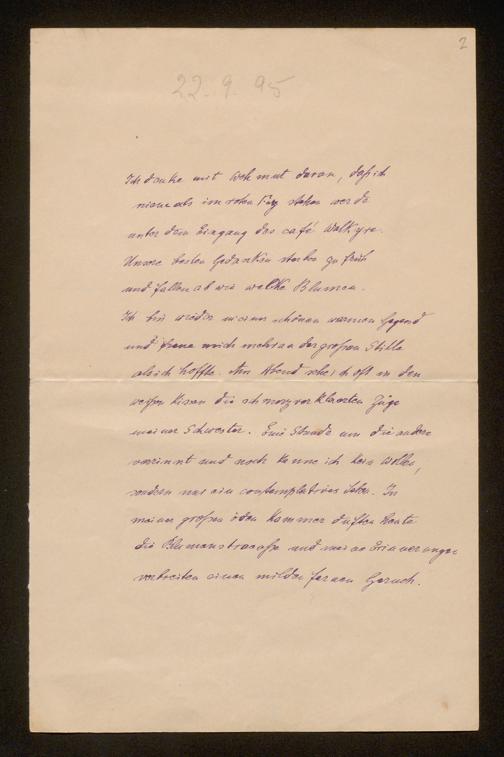 2
22. 9. 95
Ich denke mit Wehmut daran, daß ich
niemals im roten Fez stehen werde
unter dem Eingang des café Walkyre.
Unsere besten Gedanken sterben zu früh
und fallen ab wie welke Blumen.
Ich bin wieder in einer schönen warmen Gegend
und freue mich mehr an der großen Stille
als ich hoffte. Am Abend sehe ich oft in den
weißen Kissen die schmerzverklaerten Züge
meiner Schwester. Eine Stunde um die andere
verrinnt und noch kenne ich kein Wollen,
sondern nur ein contemplatives Leben. In
meiner großen öden Kammer duften heute
die Blumenstraeuße und meine Erinnerungen
verbreiten einen milden fernen Geruch.